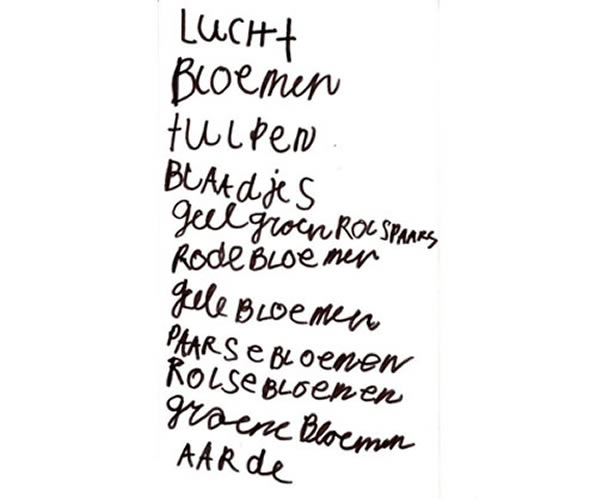 LUCHt
BLOEMEN
tULPEN
BLAAdjES
geel groen ROLSPAARS
RODE BLOEMEN
gele BLOEMEN
PAARSEBLOEMEN
ROLSEBLOEMEN
groene Bloemen
AARde